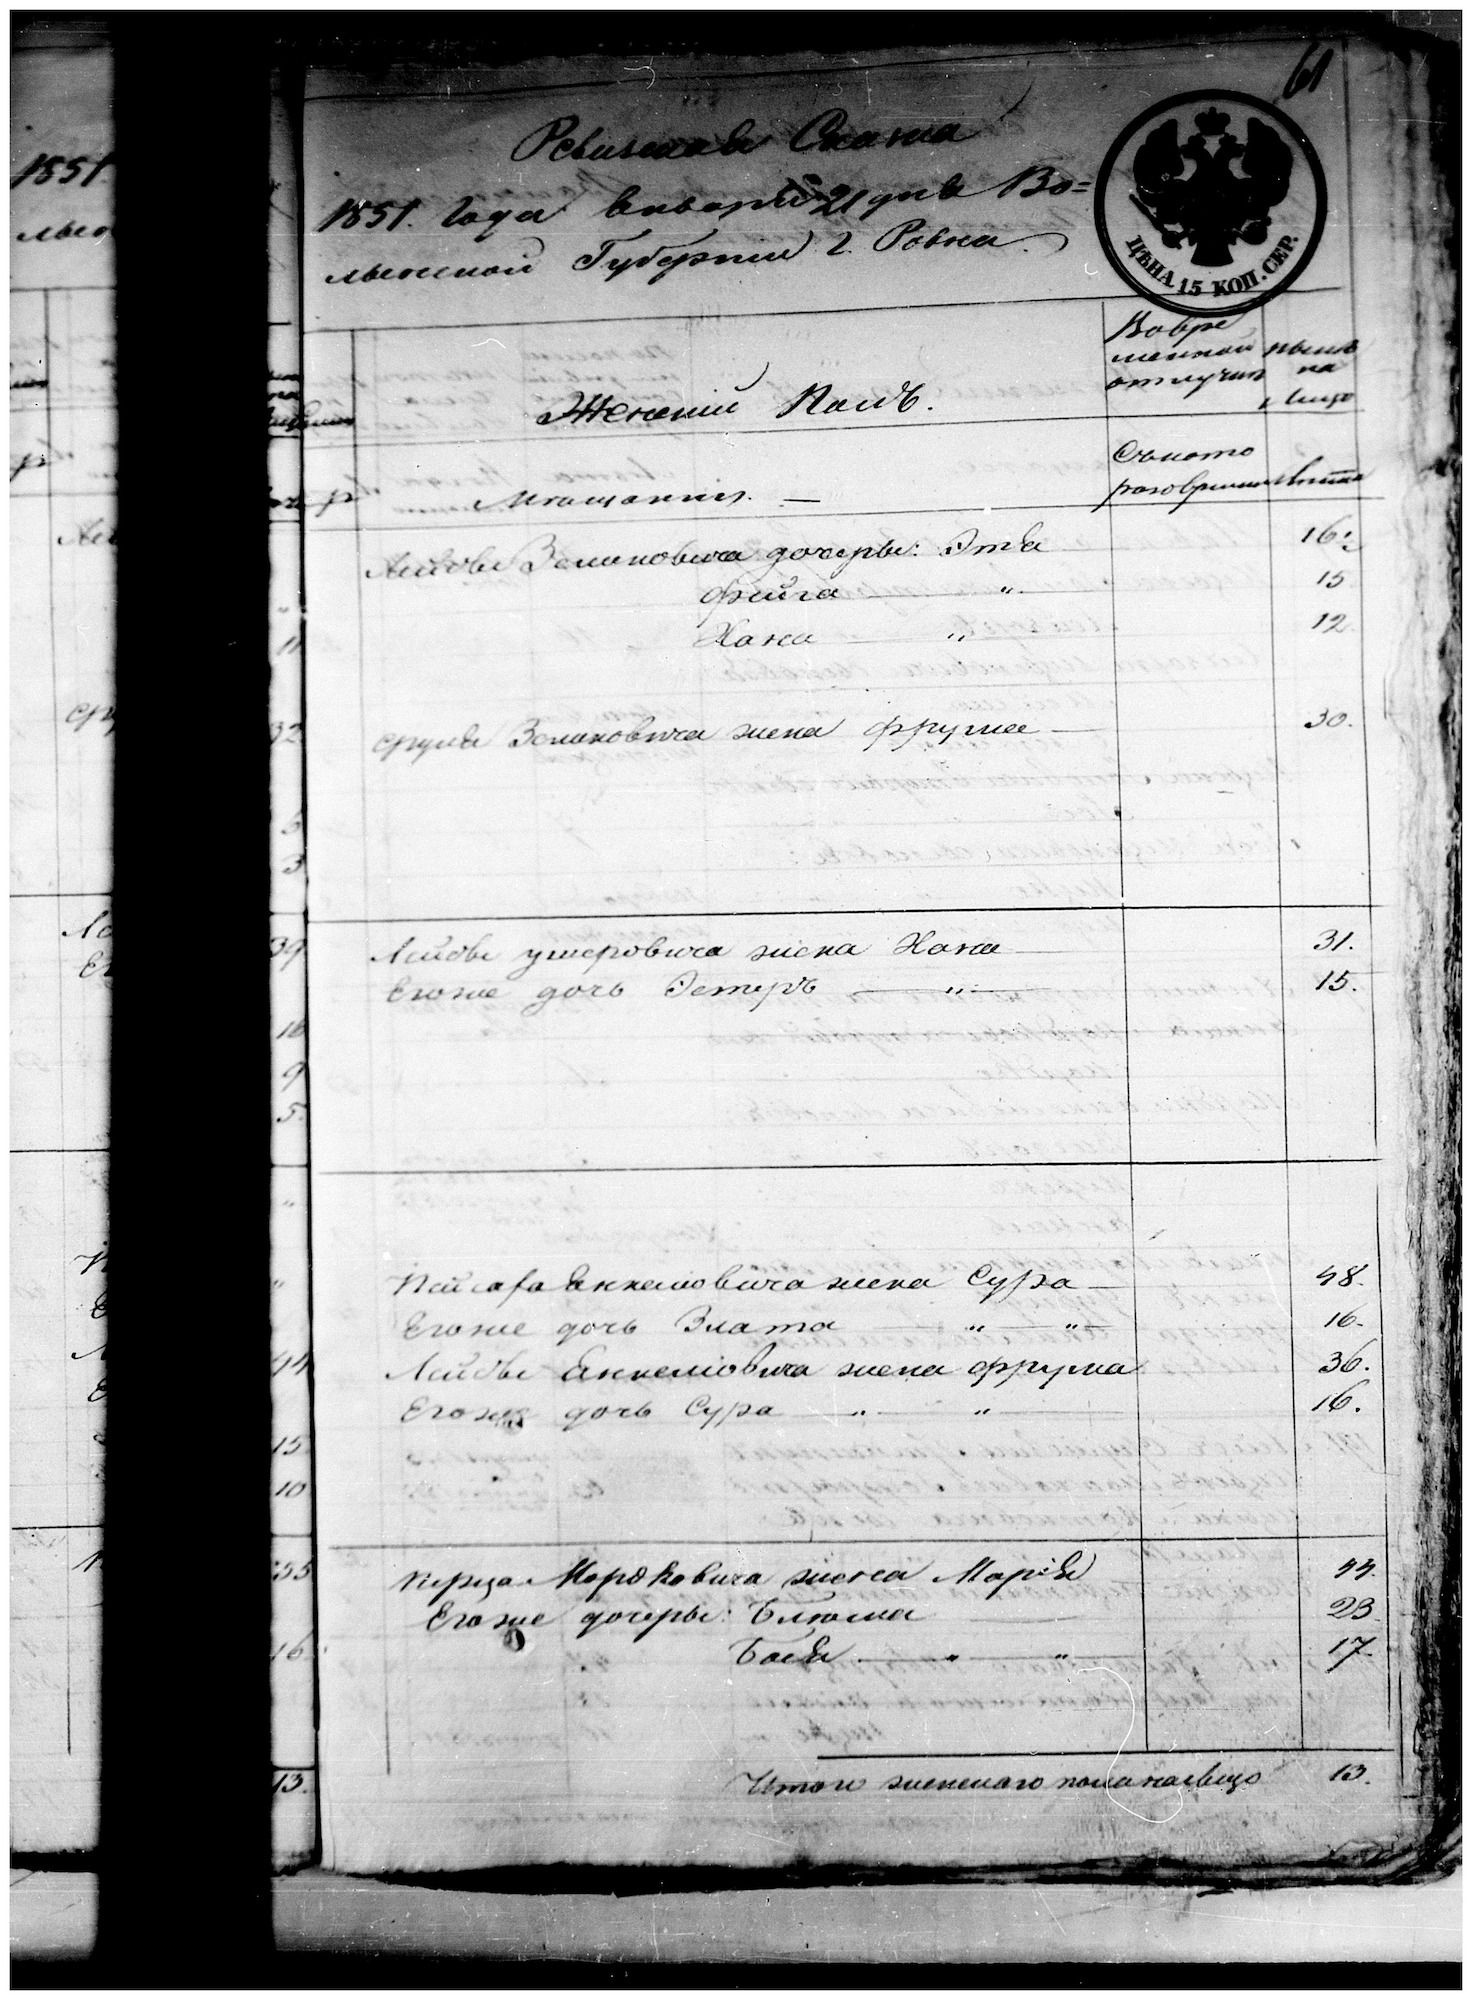 61
Ревизская Сказка
1851. Года Января 21 дня Во=
лынской Губернии г. Ровна
ЦѢНА 15 КОП. СЕР.
Женский Полъ.
Вовре
менной
отлучки
ныне
на
лицо
Мещанки. —
Съкото
раго времени
Лета
Лейбы Зельмановича дочеры: Этя 16.
Фейга — " — 15
Хана — " 12.
Сруля Зельмановича жена Фрума — 30.
Лейбы Ушеровича жена Хана — 31.
Егоже дочь Эстеръ — " — 15.
Янкелиовича жена Сура — 48.
Егоже дочь Злата — " — " — 16.
Лейбы Янкелиовича жена Фрума 36.
Егоже дочь Сура — " — " — 16.
Перца Мордковича жена Марія 44.
Егоже дочеры: Блюма — 23
Бася — " — " — 17.
Итого женскаго пола налицо 13.
1851
32
5
3
39
16
9
5.
44
15
10
55
16
13.